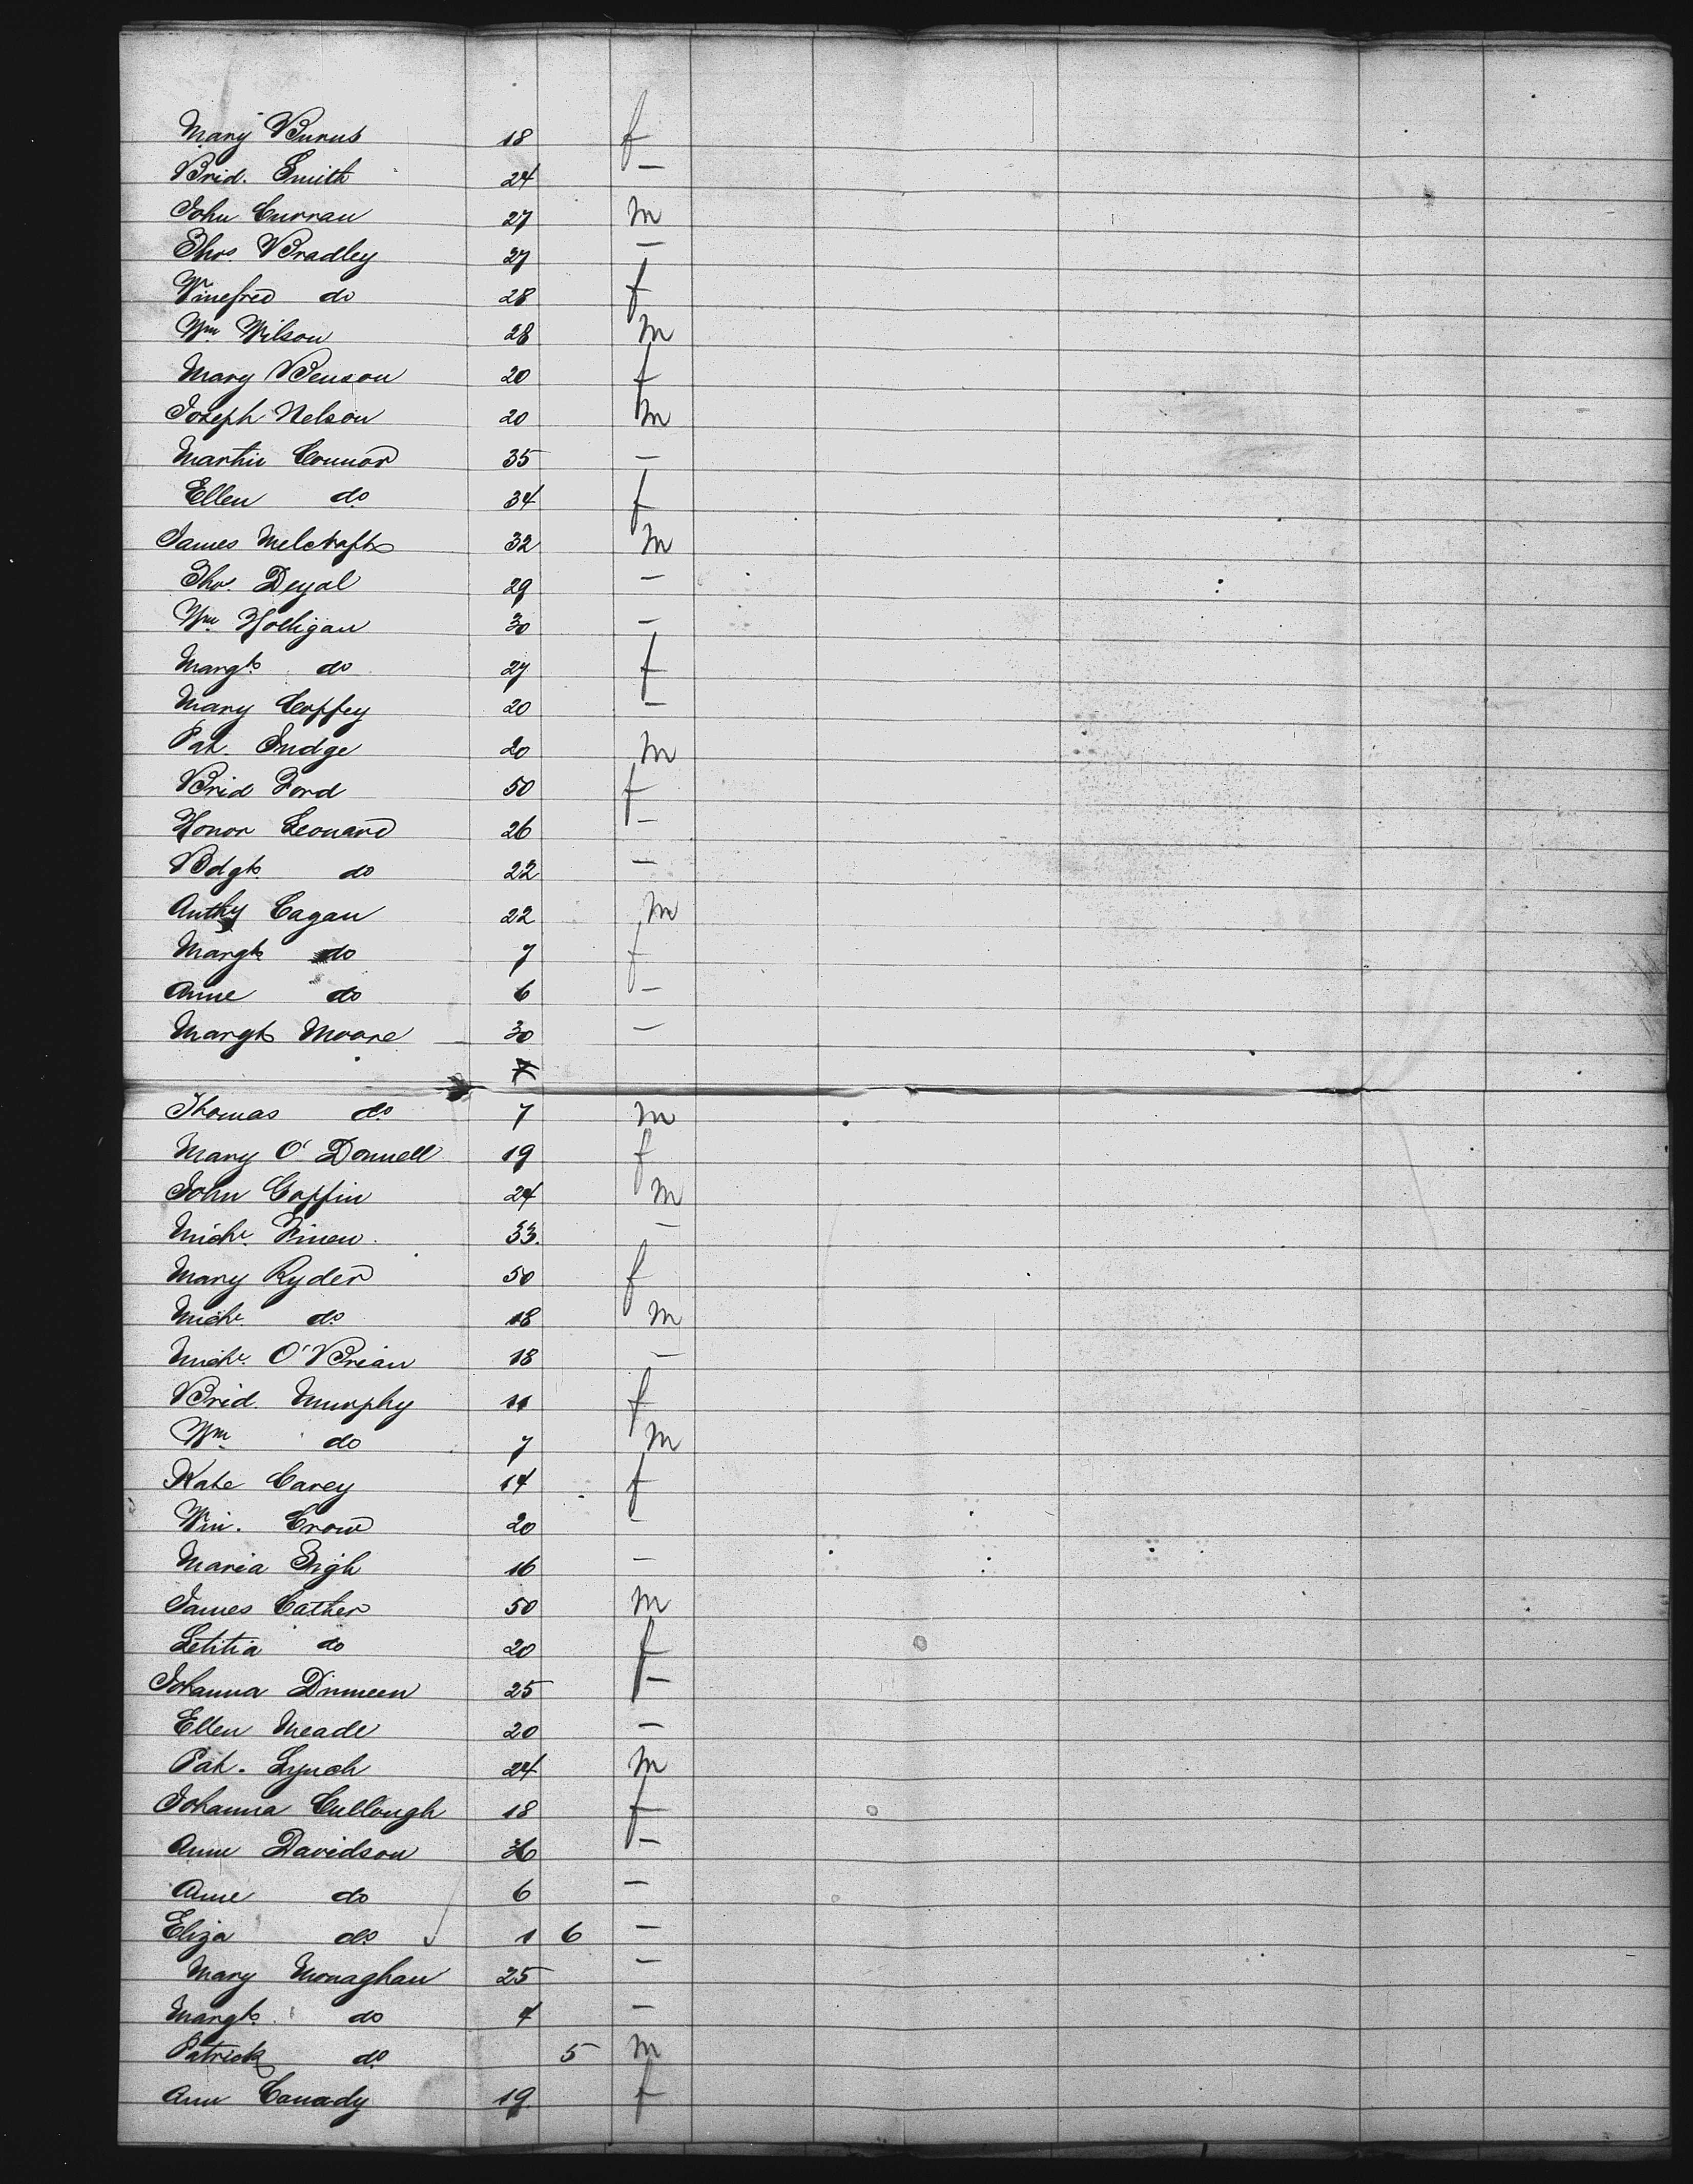 Mary Burns 18 f
Brid. Smith 24 —
John Curran 27 m
Thos. Bradley 27 —
Winefred do 28 f
Wm. Wilson 28 m
Mary Benson 20 f
Joseph Nelson 20 m
Martin Connor 35 —
Ellen do. 34 f
James 32 m
Thos. Deyal 29 —
Wm. Holligan 30 —
Margt. do 27 f
Mary Coffey 20 —
Pat. Judge 20 m
Brid Ford 50 f
Honor Leonard 26 —
Bdgt. do 22 —
Anthy Eagan 22 m
Margt. do 7 f
Anne do 6 —
Margt Moore 30 —
7
Thomas do. 7 m
Mary O'Donnell 19 f
John Goffin 24 m
Michl. 33. —
Mary Ryder 50 f
Michl. do. 18 m
Michl. O'Brian 18 —
Brid. Murphy 11 f
Wm. do 7 m
Kate Carey 14 f
Win. Crow 20 —
Maria 16 —
James Cather 50 m
Letitia do 20 f
Johanna 25 —
Ellen Meade 20 —
Pat. Lynch 24 m
Johanna Cullough 18 f
Anne Davidson 36 —
Anne do 6 —
Eliza do. 1 6 —
Mary Monaghan 25 —
Margt. do 4 —
Patrick do. 5 m
Ann Canady 19. f